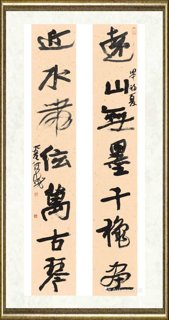 遠山無墨千穐畫
近水無弦萬古琴